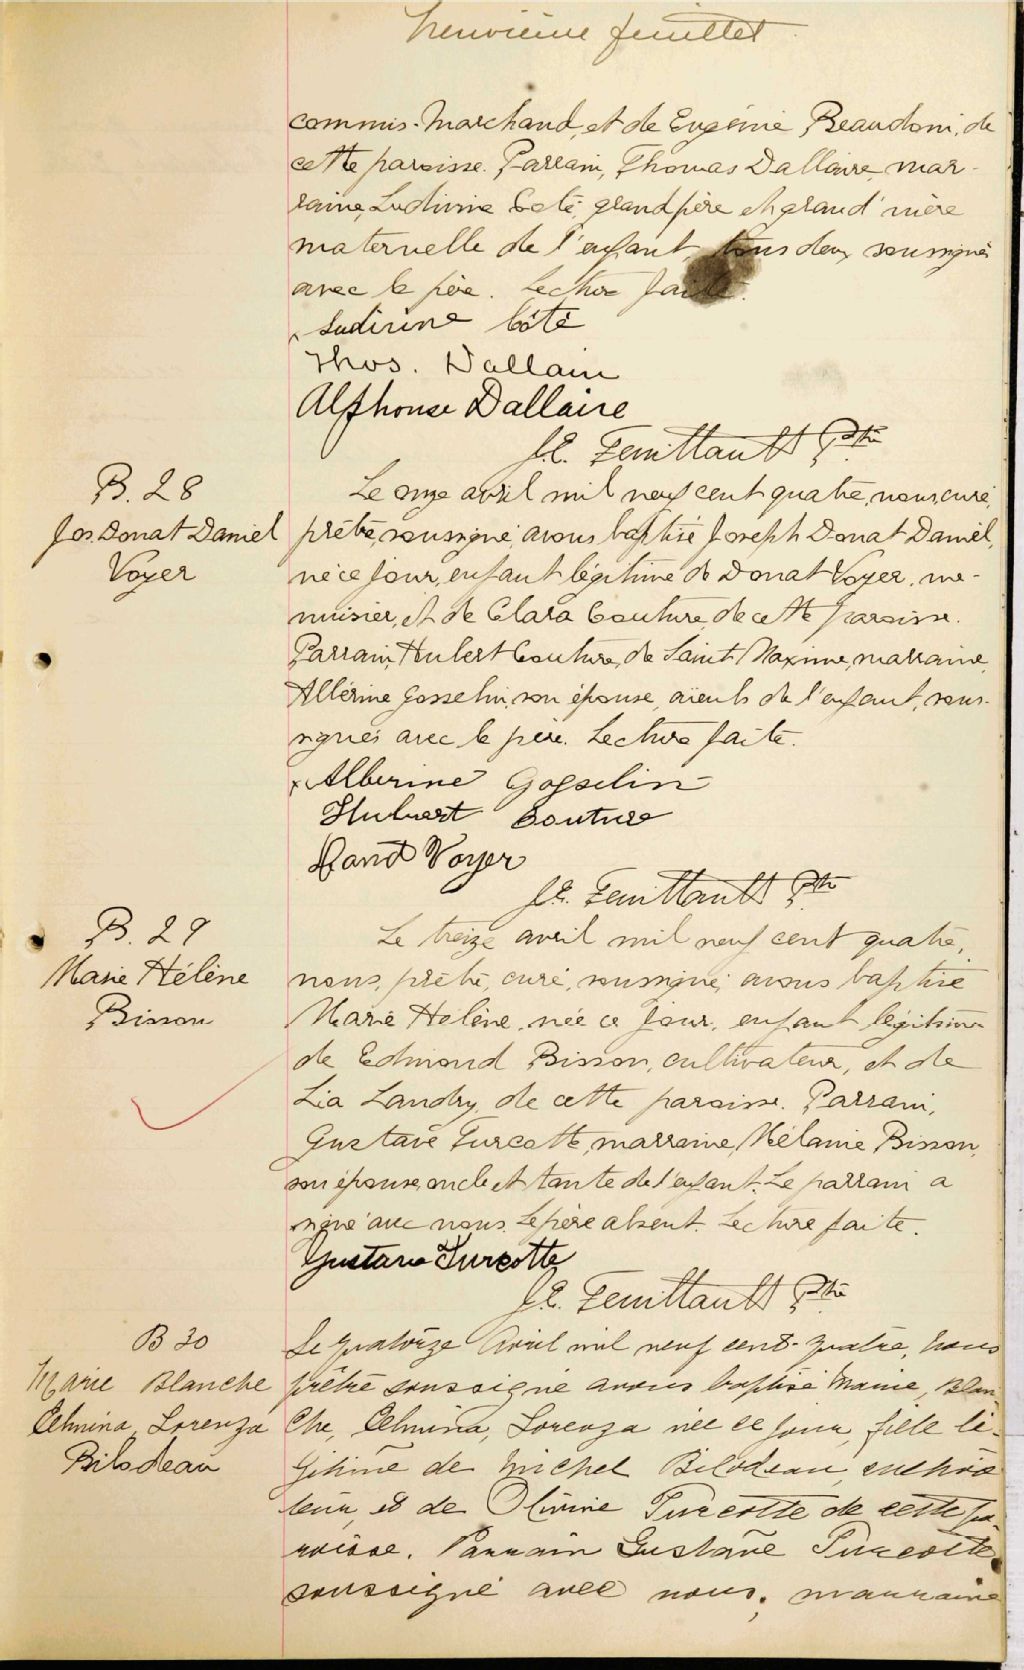 neuvième feuillet
commis-Marchand, et de Eugénie Beaudoin, de
cette paroisse. Parrain, Thomas Dallaire, mar-
raine, Ludivine Coté, grandpère et grand'mère
maternelle de l'enfant, tous deux soussignés
avec le père. Lecture faite.
Ludivine Côté
Thos. Dallain
Alphonse Dallaire
J.E. Feuiltault Ptre
B. 28
Jos. Donat Daniel
Voyer
Le onze avril mil neuf cent quatre, nous, curé,
prêtre, soussigné, avons baptisé Joseph Donat Daniel,
né ce jour, enfant légitime de Donat Voyer, me-
nuisier, et de Clara Couture, de cette paroisse.
Parrain, Hubert Couture, de Saint Maxime, marraine,
Albérine Gosselin, son épouse, aïeuls de l'enfant, sous-
signés avec le père. Lecture faite.
x Alberine Gosselin
Hubert Couture
Donat Voyer
J.E. Feuiltault Ptre
B. 29
Marie Hélène
Bisson
Le treize avril mil neuf cent quatre,
nous, prêtre, curé, soussigné, avons baptisé
Marie Hélène, née ce jour, enfant légitime
de Edmond Bisson, cultivateur, et de
Lia Landry, de cette paroisse. Parrain,
Gustave Turcotte, marraine, Mélanie Bisson,
son épouse, oncle et tante de l'enfant. Le parrain a
signé avec nous. Le père absent. Lecture faite.
Gustave Turcotte
J.E. Feuiltault Ptre
B 30
Marie Blanche
Celmina, Lorenza
Bilodeau
Le quatorze Avril mil neuf cent-quatre, nous
prêtre soussigné avons baptisé Marie, Blan-
che, Celmina, Lorenza née ce jour, fille lé-
gitime de Michel Bilodeau, cultiva
teur, et de Olivine Turcotte de cette pa-
roisse. Parrain Gustave Turcotte
soussigné avec nous; marraine